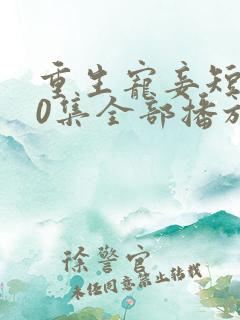 重生宠妾短
0集全部播放
徐警官
未经同意禁止转载